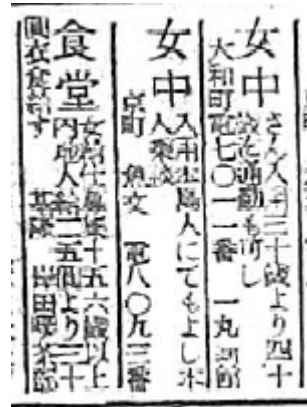 女中
さん入用二十歳より四十
歳迄通勤も可し
大和町 電七〇一一番 一丸
女中
入用本島人にてもよし本
人
京町 魚文 電八〇九三番
食堂
女給仕募集十五六歳以上
内地人給二五圓より三十
圓衣食給す 基隆 岸田